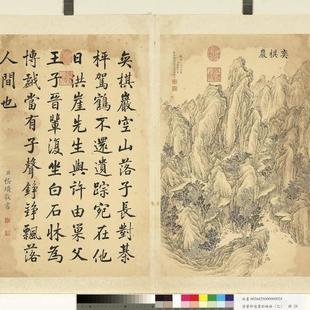 奕棋巖
奕棋巖空山落子長對棊
枰駕鶴不還遺踪宛在他
日洪崖先生與許由巢父
王子晉輩復坐白石牀為
博戲當有子聲錚錚飄落
人間也
臣嵇璜敬書